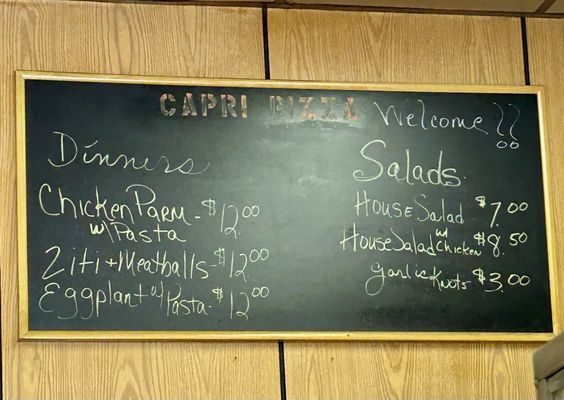 CAPRI PIZZA
Welcome!!
Dinners
Chicken Parm - $12.00
w/ Pasta
Ziti + Meatballs - $12.00
Eggplant w/ Pasta - $12.00
Salads
House Salad $7.00
House Salad w/ Chicken $8.50
garlic Knots - $3.00